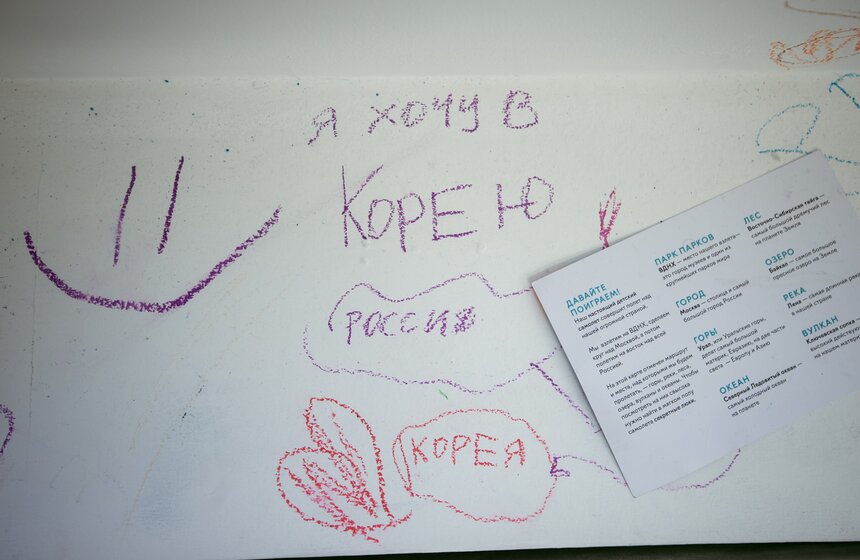 Я ХОЧУ В
КОРЕЮ
РОССИЯ
КОРЕЯ
ДАВАЙТЕ
ПОИГРАЕМ!
Наш настоящий детский
самолет совершит полет над
нашей огромной страной.
Мы взлетим на ВДНХ, сделаем
круг над Москвой, а потом
полетим на восток над всей
Россией.
На этой карте отмечен маршрут
и места, над которыми мы будем
пролетать, — горы, реки, леса,
озера, вулканы и океаны. Чтобы
посмотреть на них свысока
нужно найти в мягком полу
самолета секретные люки.
ПАРК ПАРКОВ
ВДНХ — место нашего взлета —
это город музеев и один из
крупнейших парков мира
ГОРОД
Москва — столица и самый
большой город России
ГОРЫ
Урал, или Уральские горы,
делят самый большой
материк, Евразию, на две части
света — Европу и Азию
ОКЕАН
Северный Ледовитый океан —
самый холодный океан
на планете
ЛЕС
Восточно-Сибирская тайга —
самый большой дремучий лес
на планете Земля
ОЗЕРО
Байкал — самое большое
пресное озеро на Земле
РЕКА
Лена — самая длинная река
в нашей стране
ВУЛКАН
Ключевская сопка —
высокий
на нашем